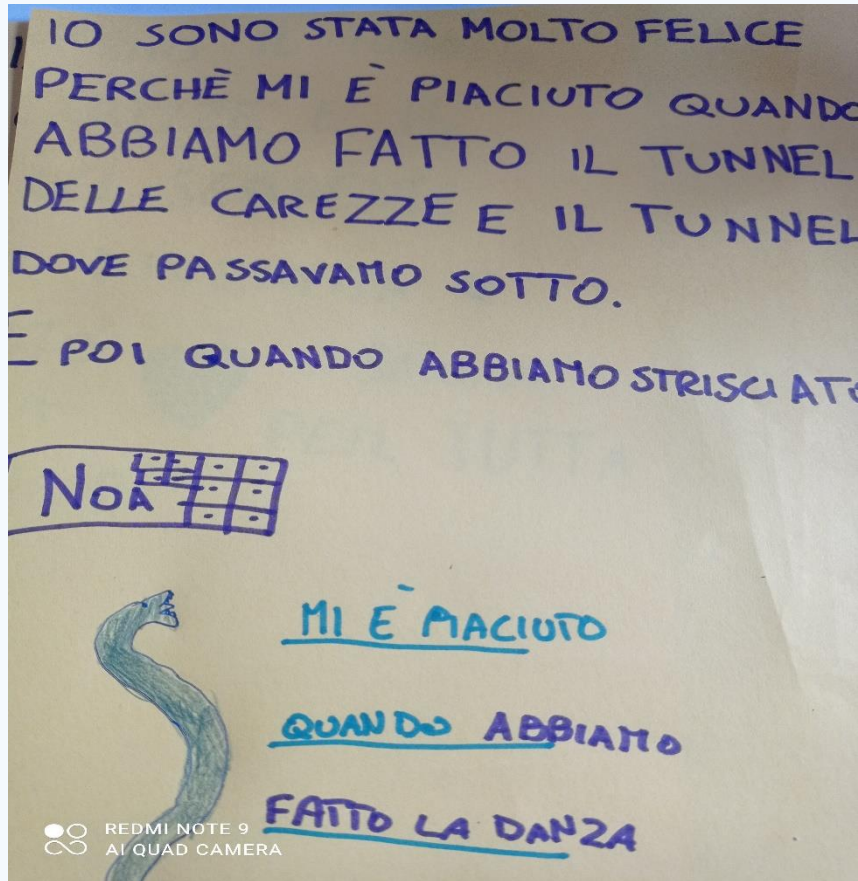 IO SONO STATA MOLTO FELICE
PERCHÈ MI È PIACIUTO QUANDO
ABBIAMO FATTO IL TUNNEL
DELLE CAREZZE E IL TUNNEL
DOVE PASSAVAMO SOTTO.
E POI QUANDO ABBIAMO STRISCIATO
NOA
MI È PIACIUTO
QUANDO ABBIAMO
FATTO LA DANZA
REDMI NOTE 9
AI QUAD CAMERA